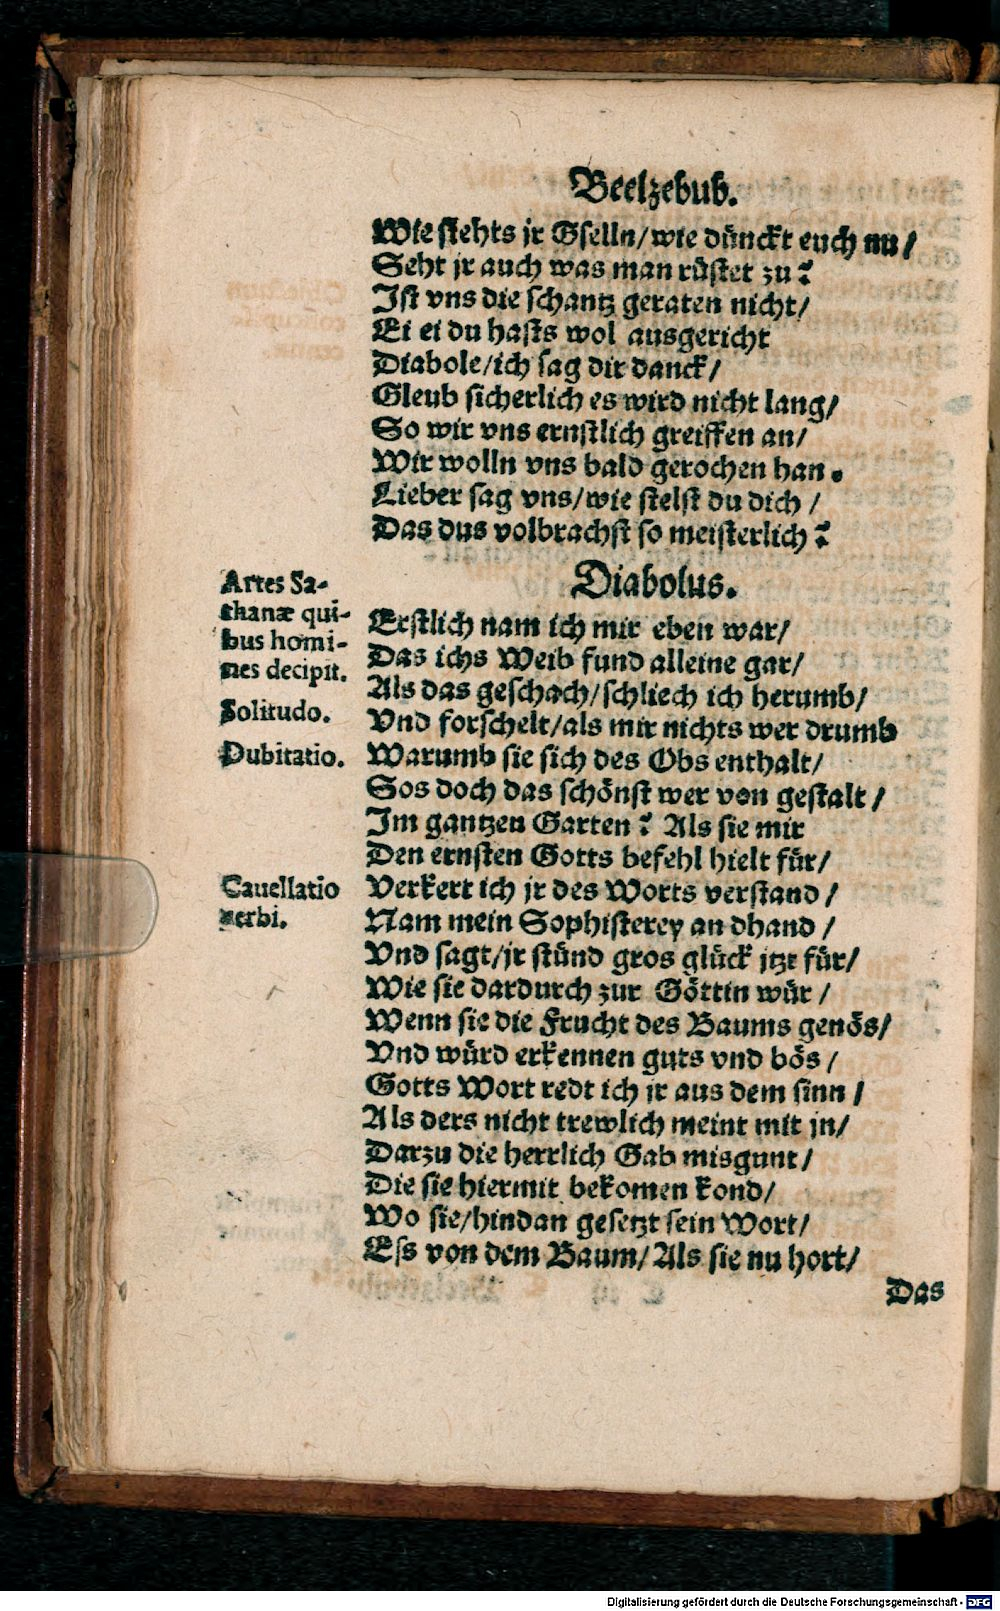 Beelzebub.
Wie stehts jr Gselln/wie dünckt euch nu/
Seht jr auch was man rüstet zu?
Ist vns die schantz geraten nicht/
Ei ei du hasts wol ausgericht
Diabole/ich sag dir danck/
Gleub sicherlich es wird nicht lang/
So wir vns ernstlich greiffen an/
Wir wolln vns bald gerochen han.
Lieber sag vns/wie stelst du dich/
Das dus volbrachst so meisterlich?
Diabolus.
Artes Sa-
thanæ qui-
bus homi-
nes decipit.
Solitudo.
Dubitatio.
Erstlich nam ich mir eben war/
Das ichs Weib fund alleine gar/
Als das geschach/schliech ich herumb/
Vnd forschelt/als mir nichts wer drumb
Warumb sie sich des Obs enthalt/
Sos doch das schönst wer von gestalt/
Im gantzen Garten? Als sie mir
Den ernsten Gotts befehl hielt für/
Cauellatio
verbi.
Verkert ich jr des Worts verstand/
Nam mein Sophisterey an dhand/
Vnd sagt/jr stünd gros glück jtzt für/
Wie sie dardurch zur Göttin wür/
Wenn sie die Frucht des Baums genös/
Vnd würd erkennen guts vnd bös/
Gotts Wort redt ich jr aus dem sinn/
Als ders nicht trewlich meint mit jn/
Darzu die herrlich Gab misgunt/
Die sie hiermit bekomen kond/
Wo sie/hindan gesetzt sein Wort/
Ess von dem Baum/Als sie nu hort/
Das
Digitalisierung gefördert durch die Deutsche Forschungsgemeinschaft - DFG